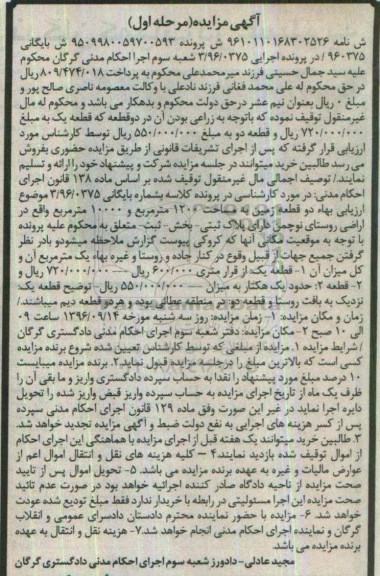 آگهی مزایده (مرحله اول)
ش نامه ۹۶۱۰۱۱۰۱۶۸۳۰۲۵۲۶ ش پرونده ۹۵۰۹۹۸۰۰۵۹۷۰۰۵۹۳ ش بایگانی
۹۶۰۳۷۵ / در پرونده اجرایی ۳/۹۶/۰۳۷۵ شعبه سوم اجرا احکام مدنی گرگان محکوم
علیه سید جمال حسینی فرزند میرمحمدعلی محکوم به پرداخت ۸۰۹/۴۷۴/۰۱۸ ریال
در حق محکوم له علی محمد فغانی فرزند نادعلی با وکالت معصومه ناصری صالح پور و
مبلغ ۰ ریال بعنوان نیم عشر درحق دولت محکوم و بدهکار می باشد و محکوم له مال
غیرمنقول توقیف نموده که باتوجه به زراعی بودن آن در دوقطعه که قطعه یک به مبلغ
۷۲۰/۰۰۰/۰۰۰ ریال و قطعه دو به مبلغ ۵۵۰/۰۰۰/۰۰۰ ریال توسط کارشناس مورد
ارزیابی قرار گرفته که پس از اجرای تشریفات قانونی از طریق مزایده حضوری بفروش
می رسد طالبین خرید میتوانند در جلسه مزایده شرکت و پیشنهاد خود را ارائه و تسلیم
نمایند./ توصیف اجمالی مال غیرمنقول توقیف شده بر اساس ماده ۱۳۸ قانون اجرای
احکام مدنی: در مورد کارشناسی در پرونده کلاسه بشماره بایگانی ۳/۹۶/۰۳۷۵ موضوع
ارزیابی بهاء دو قطعه زمین به مساحت ۱۲۰۰ مترمربع و ۱۰۰۰۰ مترمربع واقع در
اراضی روستای نوچمن دارای پلاک ثبتی- بخش- ثبت- متعلق به محکوم علیه پرونده
با توجه به موقعیت مکانی آنها که کروکی پیوست گزارش ملاحظه میشود و بادر نظر
گرفتن جمیع جهات از قبیل وقوع در کنار جاده و روستا و غیره بهاء یک مترمربع آن و
کل میزان آن ۱- قطعه یک: از قرار متری ۶۰۰/۰۰۰ ریال ---- ۷۲۰/۰۰۰/۰۰۰ ریال و
۲- قطعه ۲: حدود یک هکتار به میزان ---- ۵۵۰/۰۰۰/۰۰۰ ریال- توضیح قطعه یک:
نزدیک به بافت روستا و قطعه دو در منطقه عطائی بوده و هر دو قطعه دیم میباشند./
زمان و مکان مزایده: ۱- زمان مزایده: روز سه شنبه مورخه ۱۳۹۶/۰۹/۱۴ ساعت ۰۹
الی ۱۰ صبح ۲- مکان مزایده: دفتر شعبه سوم اجرای احکام مدنی دادگستری گرگان
/ شرایط مزایده ۱. مزایده از مبلغی که توسط کارشناس تعیین شده شروع برنده مزایده
کسی است که بالاترین مبلغ را درجلسه مزایده قبول نماید ۲. برنده مزایده میبایست
۱۰ درصد مبلغ مورد پیشنهاد را نقدا به حساب سپرده دادگستری واریز و ما بقی آن را
ظرف یک ماه از تاریخ اجرای مزایده به حساب سپرده واریز قبض واریز شده را تحویل
دایره اجرا نماید در غیر این صورت وفق ماده ۱۲۹ قانون اجرای احکام مدنی سپرده
پس از کسر هزینه های اجرایی به نفع دولت ضبط و آگهی مزایده تجدید خواهد شد.
۳. طالبین خرید میتوانند یک هفته قبل از اجرای مزایده با هماهنگی این اجرای احکام
از اموال توقیف شده بازدید نمایند ۴- کلیه هزینه های نقل و انتقال اموال اعم از
عوارض مالیات و غیره به عهده برنده مزایده می باشد. ۵- تحویل اموال پس از تایید
صحت مزایده از ناحیه دادگاه صادر کننده اجرائیه خواهد بود در صورت عدم تائید
صحت مزایده این اجرا مسئولیتی در رابطه با خریدار ندارد فقط مبلغ تودیع شده عودت
خواهد شد. ۶- مزایده با حضور نماینده محترم دادستان دادسرای عمومی و انقلاب
گرگان و نماینده اجرای احکام مدنی انجام خواهد شد. ۷- هزینه نقل و انتقال به عهده
برنده مزایده می باشد.
مجید عادلی- دادورز شعبه سوم اجرای احکام مدنی دادگستری گرگان